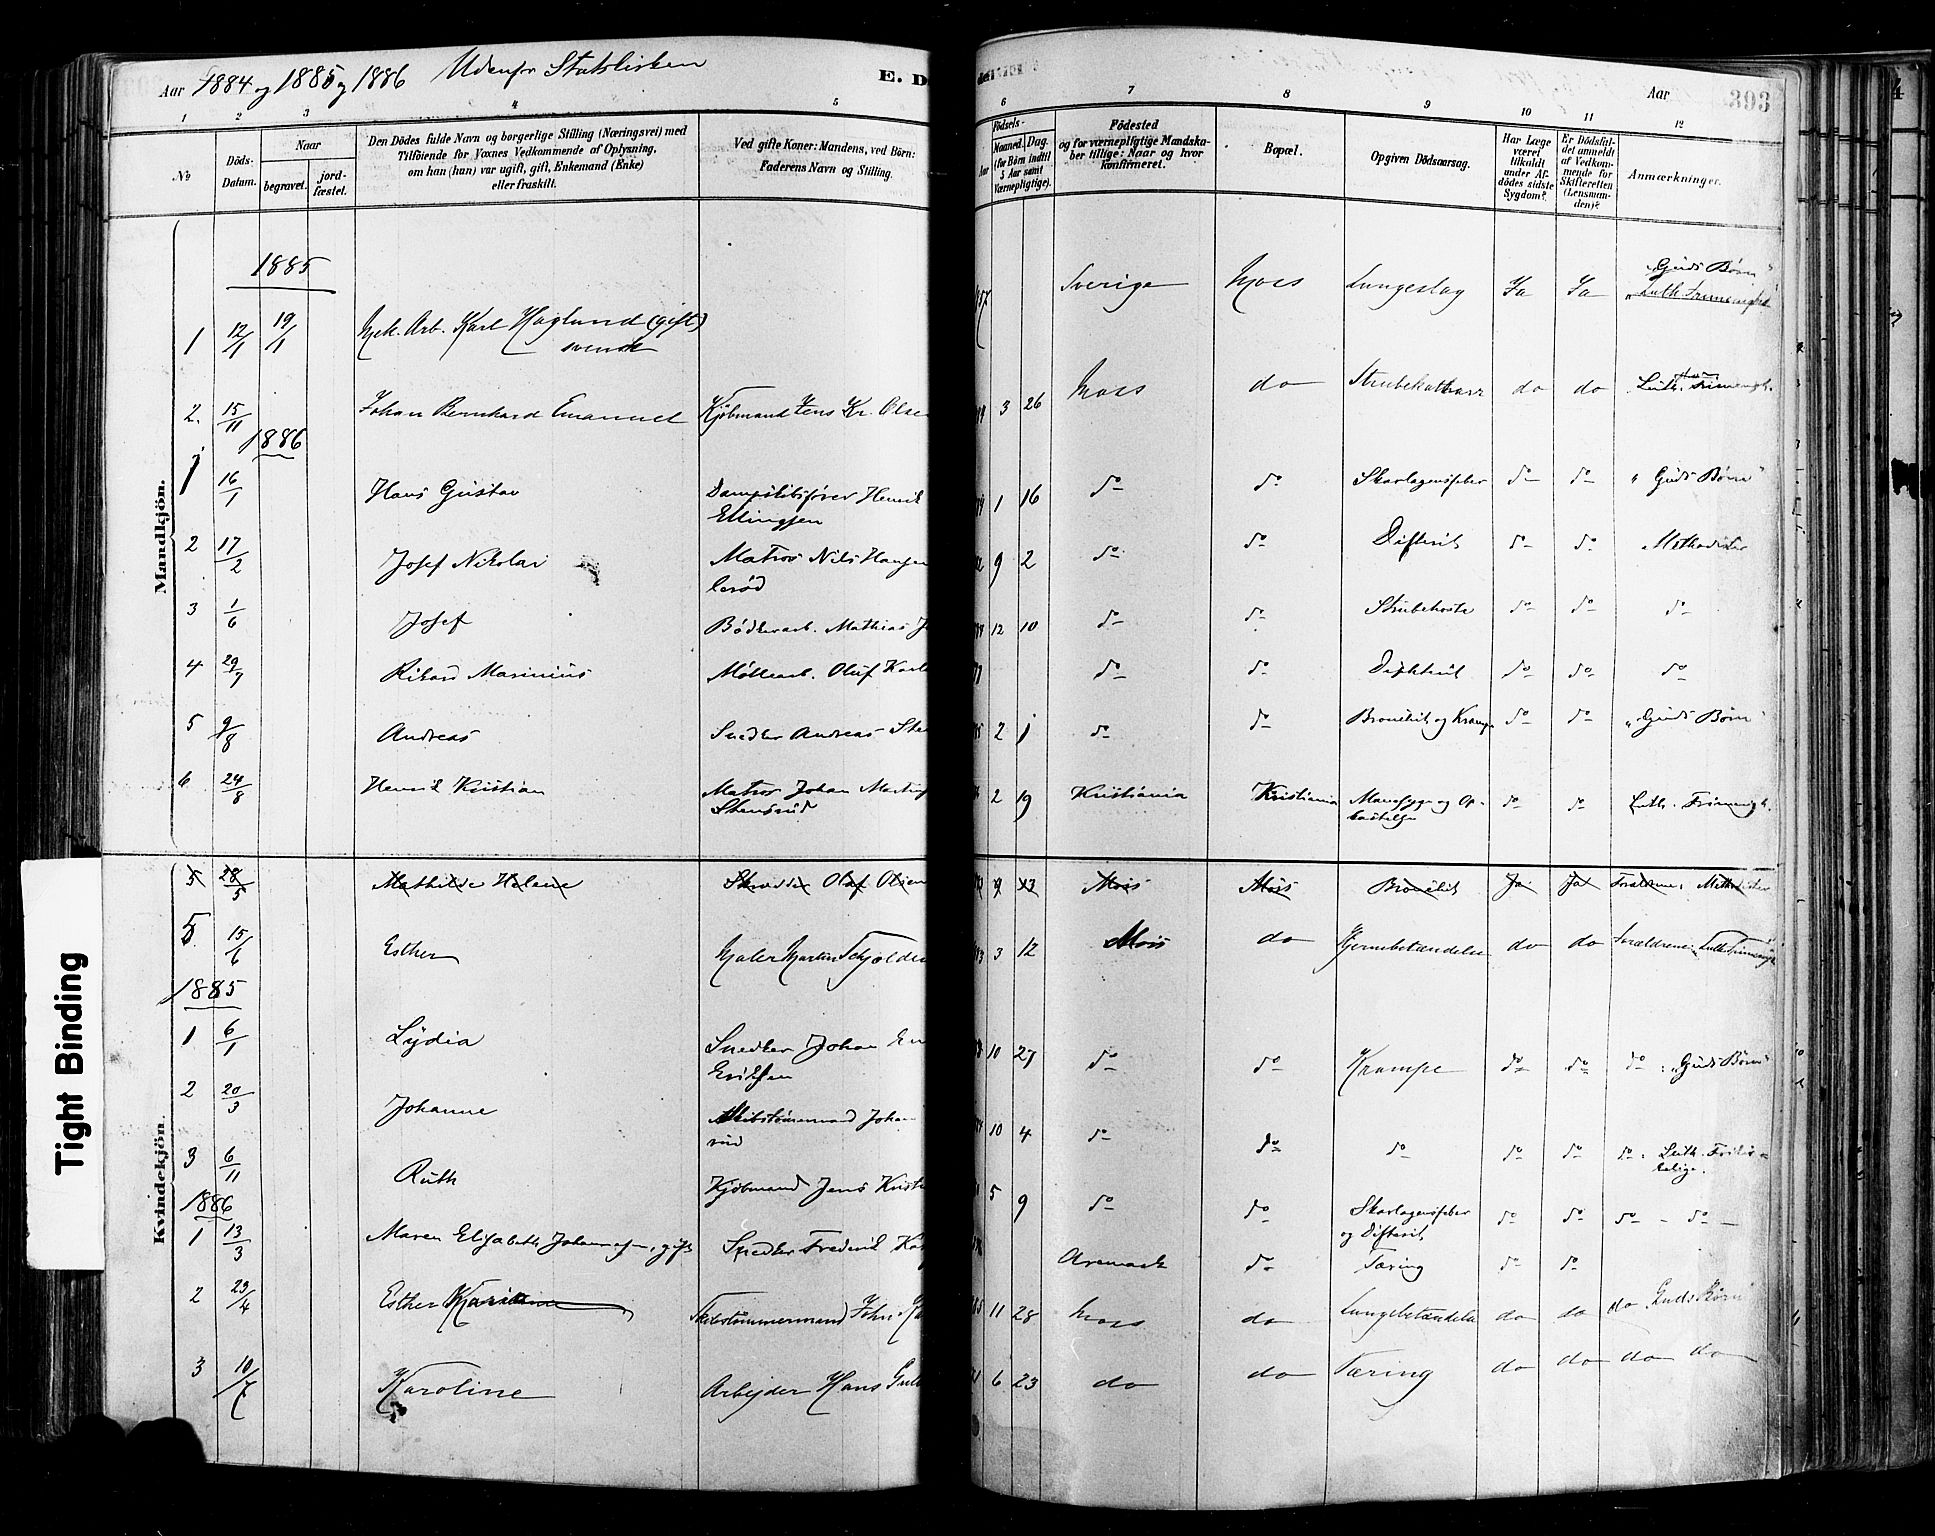 Aar 1884 og 1885 og 1886 Udenfor Statskirken
E. D
Aar
393
1 2 3 4 5
6 7 8 9 10 11 12
No
Döds-Datum.
Naar
begravet.
jord-fæstet.
Den Dödes fulde Navn og borgerlige Stilling (Næringsvei) med
Tilföiende for Voxnes Vedkommende af Oplysning,
om han (hun) var ugift, gift, Enkemand (Enke)
eller fraskilt.
Ved gifte Koner: Mandens, ved Börn:
Faderens Navn og Stilling.
Födsels-
Aar
Maaned. Dag.
(for Börn indtil
5 Aar samt
Værnepligtige).
Födested
og for værnepligtige Mandska-
ber tillige: Naar og hvor
konfirmeret.
Bopæl.
Opgiven Dödsaarsag.
Har Læge
været
tilkaldt
under Af-
dödes sidste
Sygdom?
Er Dödsfal-
det anmeldt
af Vedkom-
mende for
Skifteretten
(Lensman-
den)?
Anmærkninger.
Mandkjön.
1885
1 12/1 19/1 Mek. Arb. Karl Haglund (gift) svensk
57 Sverige Moss Lungeslag Ja Ja "Guds Børn" Luth. Frimenighed
2. 15/11 Johan Bernhard Emanuel Kjøbmand Jens Kr. Olse
3 26 Moss do Strubekatharr do do Luth. Frimenigh.
1886
1 16/1 Hans Gustav Dampskibsfører Henrik Ellingsen
1 16 do do Skarlagensfeber do do "Guds Børn"
2 17/2 Josef Nikolai Matros Nils Hansen
9 2 do do Difterit do do Methodister
3 1/6 Josef Bødkerarb. Mathias J
12 10 do do Strubehoste do do do
4 29/7 Rikard Marinius Møllearb. Oluf Karl
do do Difterit do do do
5 9/8 Andreas Snedker Andreas
2 1 do do Bronchit og Krampe do do "Guds Børn"
6 24/8 Henrik Kristian Matros Johan Martin Stensrud
2 19 Kristiania Kristiania Mavesyge og Opkastelse do do Luth. Frimenigh.
Kvindekjön.
5 28/5 Mathilde Helene Skrædder Olaf Olsen
9 13 Moss Moss Bronchit Ja Ja Forældrene: Methodister
5 15/6 Esther Maler Martin Schjolden
3 12 Moss do Hjernebetændelse do do Forældrene: Luth. Frimenigh
1885
1 6/1 Lydia Snedker Johan Eriksen
10 27 do do Krampe do do do: "Guds Børn"
2 20/3 Johanne Skibstømmermand Johan
10 4 do do do do do do: Luth.
3 6/11 Ruth Kjøbmand Jens Krist
5 9 do do Skarlagensfeber og Difterit do do do - do -
1886
1 13/3 Maren Elisabeth Johannesen, gift Snedker Frederik
Aremark do Tæring do do
2 23/4 Esther Skibstømmermand Joh.
11 28 Moss do Lungebetændelse do do do "Guds Børn"
3 10/7 Karoline Arbejder Hans
6 23 do do Tæring do do do do
Tight Binding